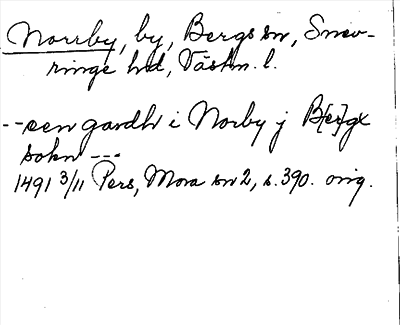 Norrby, by, Bergs sn, Snev-
ringe hd, Västm. l.
-- een gardh i Norby j B[er]gx
sokn ---
1491 3/11 Pers, Mora sn 2, s. 390. orig.